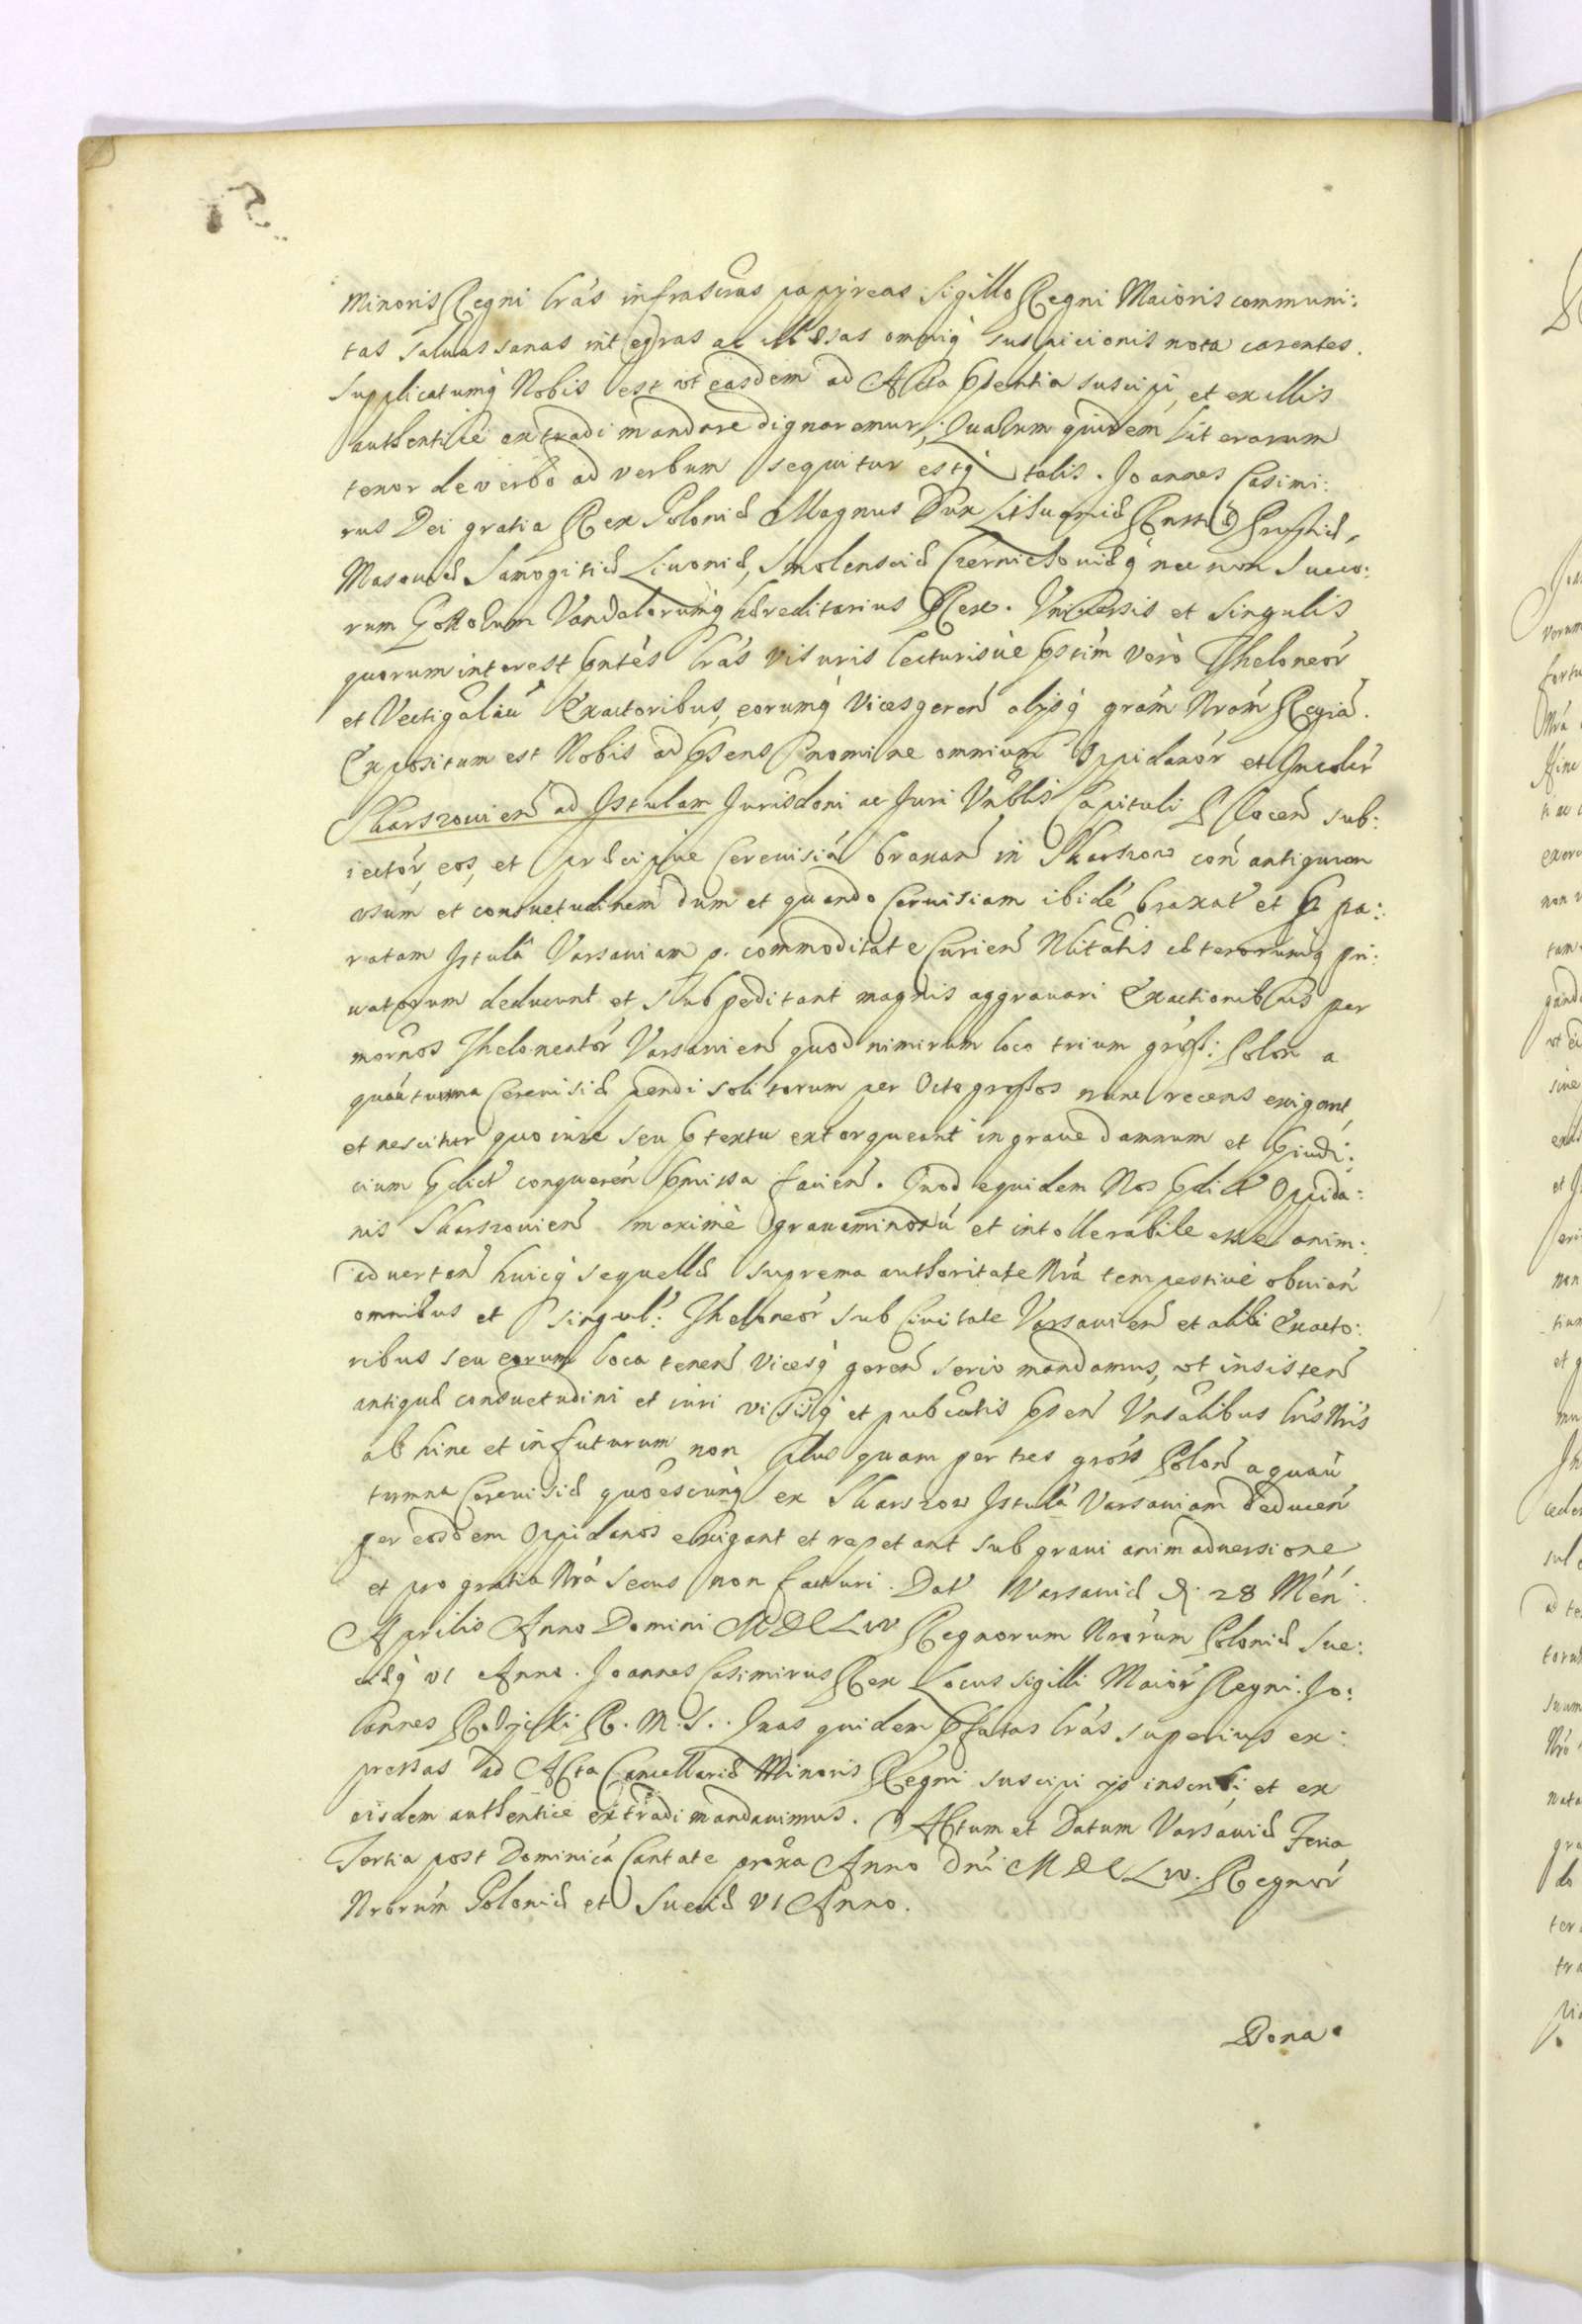 Minoris Regni lrãs infrascrãs papyreas Sigillo Regni Maioris communi:
tas saluas sanas integras ac illæsas omniq́ suspicionis nota carentes.
Supplicatumq́ Nobis est vt easdem ad Acta p̃sentia suscipi, et ex illis
authenticè extradi mandare dignaremur, Quarum quidem literarum
tenor de verbo ad verbum sequitur estq́ talis. Joannes Casimi:
rus Dei gratia Rex Poloniæ Magnus Dux Lithuaniæ Russiæ Prussiæ,
Masouiæ Samogitiæ Liuoniæ, Smolensciæ Czernichouiæq́ nec non Sueco:
rum Gottorum Vandalorumq́ hæreditarius Rex. Vniuersis et Singulis
quorum interest p̃ntès lrãs visuris lecturisùe p̃sтím verò Theloneor̃
et Vectigaliũ Exactoribus, eorumq́ Vicesgereñ alijsq́ grãm Nrãm Regiã.
Expositum est Nobis ad p̃sens nomine omnium Oppidanor̃ et Incolar̃
Skarszouień ad Istulam Jurisdoni ac Juri Vñblis Capituli Ploceñ sub:
iector̃, eos, et præcipue Cereuisiã braxań in Skarszow coń antiquum
vsum et consuetudinem dum et quando Ceruisiam ibidẽ braxat̃ et p̃pa:
ratam Istulâ Varsauiam p. commoditate Curień Nlitãtis cæterorumq́ pri:
uatorum deducunt et subpeditant magnis aggrauari Exactionibus per
mõrnos Theloneator̃ Varsauień quod nimirum loco trium gross: Polon a
quaũ tunna Cereuisiæ pendi solitorum per Octo grossos nunc recens exigant,
et nescitur quo iure seu p̃textu extorqueant in graue damnum et p̃iudi:
cium p̃dict̃ conquereń p̃missa facień. Quod equidem Nos p̃dict̃ Oppida:
nis Skarszouień maximè grauaminosũ et intollerabile esse anim:
aduerteń huicq́ sequellæ suprema authoritate Nrã tempestiuè obuiań
omnibus et singul: Theloneor̃ sub Ciuitate Varsauień et alibi Exacto:
ribus seu eorum loca teneń Vicesq́ gereń serio mandamus, vt insisteń
antiquæ consuetudini et iuri visisq́ et pub̃catis p̃sen Vnsãlibus lrĩs Nrĩs
ab hinc et in futurum non plus quam per tres gross Poloń a quaũ
tumna Cereuisiæ quõescunq́ ex Skarszow Istulâ Varsauiam deduceń
per eosdem Oppidanos exigant et repetant sub graui animaduersione
et pro gratia Nrã secus non facturi. Dat̃ Varsauiæ D: 28 Mén:
Aprilis Anno Domini MDCLIV Regnorum Nrõrum Poloniæ Sue:
ciæq́ VI Anno. Joannes Casimirus Rex Locus Sigilli Maior̃ Regni. Jo:
hannes Radzicki R. M. S.. Quas quidem p̃fatas lrãs superius ex:
pressas ad Acta Cancellariæ Minoris Regni suscipi ijs inscribi, et ex
eisdem authenticè extradi mandauimus. Actum et Datum Varsauiæ Feria
Tertia post Dominicã Cantate prõxa Anno Dnĩ MDCLIV. Regnor̃
Nrõrum Poloniæ et Sueciæ VI Anno.
Dona